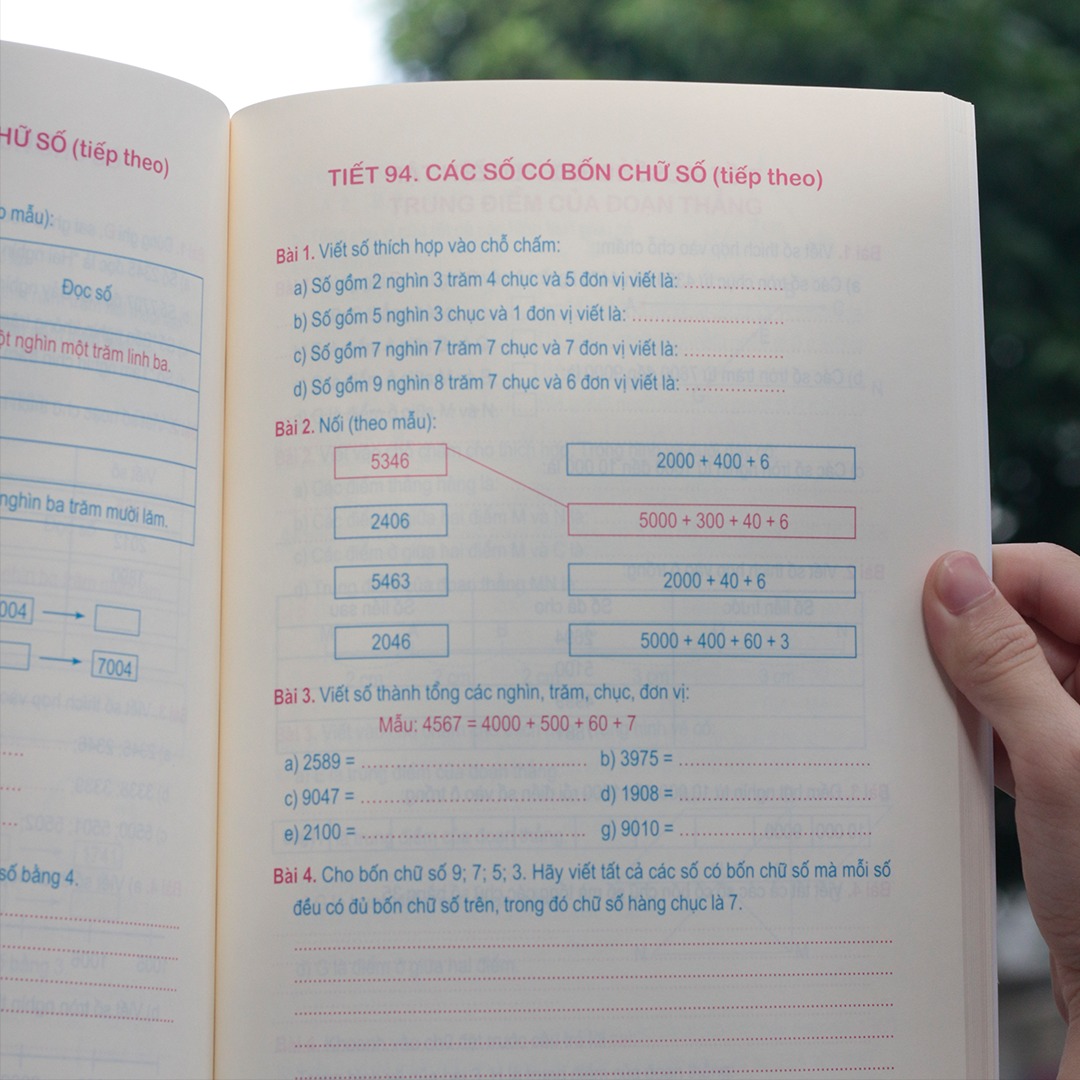 HỮ SỐ (tiếp theo)
mẫu):
Đọc số
một trăm linh ba.
nghìn ba trăm mười lăm.
004
7004
số bằng 4.
TIẾT 94. CÁC SỐ CÓ BỐN CHỮ SỐ (tiếp theo)
Bài 1. Viết số thích hợp vào chỗ chấm:
a) Số gồm 2 nghìn 3 trăm 4 chục và 5 đơn vị viết là: ....................
b) Số gồm 5 nghìn 3 chục và 1 đơn vị viết là: ..............................
c) Số gồm 7 nghìn 7 trăm 7 chục và 7 đơn vị viết là: ....................
d) Số gồm 9 nghìn 8 trăm 7 chục và 6 đơn vị viết là: ....................
Bài 2. Nối (theo mẫu):
5346 2000 + 400 + 6
2406 5000 + 300 + 40 + 6
5463 2000 + 40 + 6
2046 5000 + 400 + 60 + 3
Bài 3. Viết số thành tổng các nghìn, trăm, chục, đơn vị:
Mẫu: 4567 = 4000 + 500 + 60 + 7
a) 2589 = ........................................ b) 3975 = ........................................
c) 9047 = ........................................ d) 1908 = ........................................
e) 2100 = ........................................ g) 9010 = ........................................
Bài 4. Cho bốn chữ số 9; 7; 5; 3. Hãy viết tất cả các số có bốn chữ số mà mỗi số
đều có đủ bốn chữ số trên, trong đó chữ số hàng chục là 7.